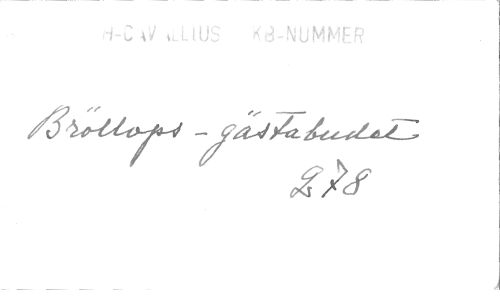 H-CAVALLIUS KB-NUMMER
Bröllops-gästabudet
278